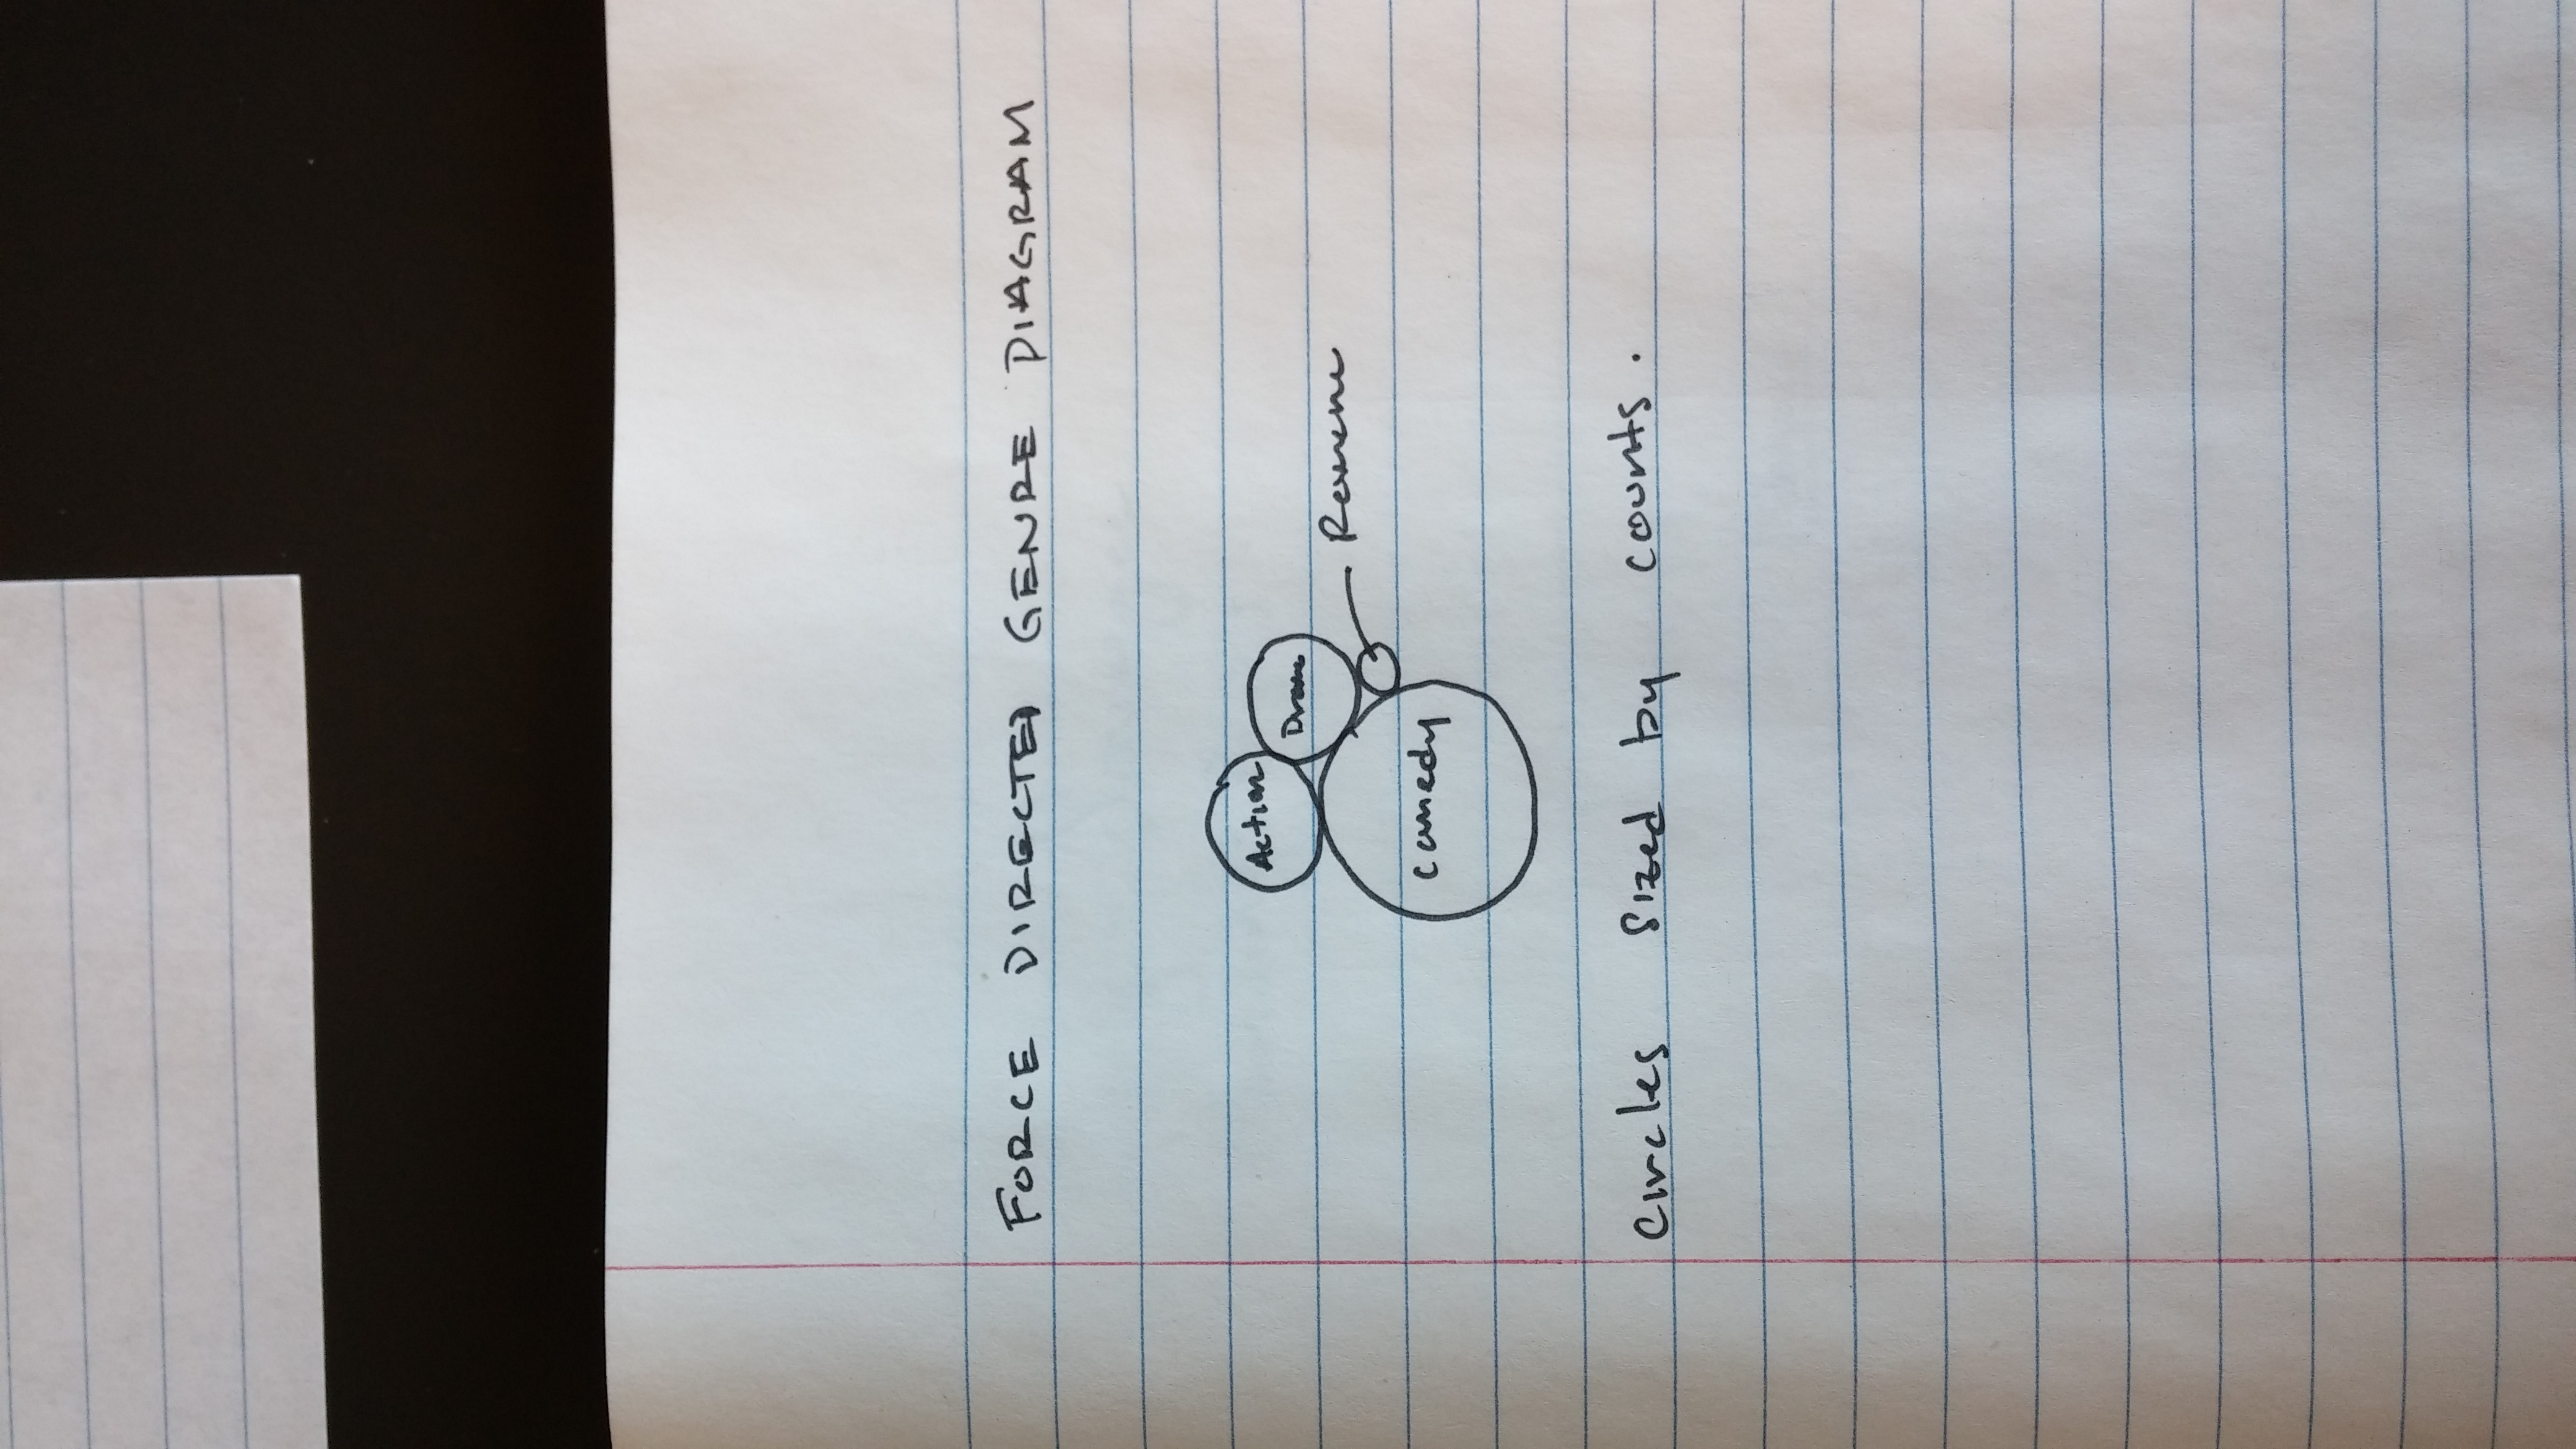 FORCE DIRECTED GENRE DIAGRAM
Action
Drama
Romance
Comedy
Circles sized by counts.